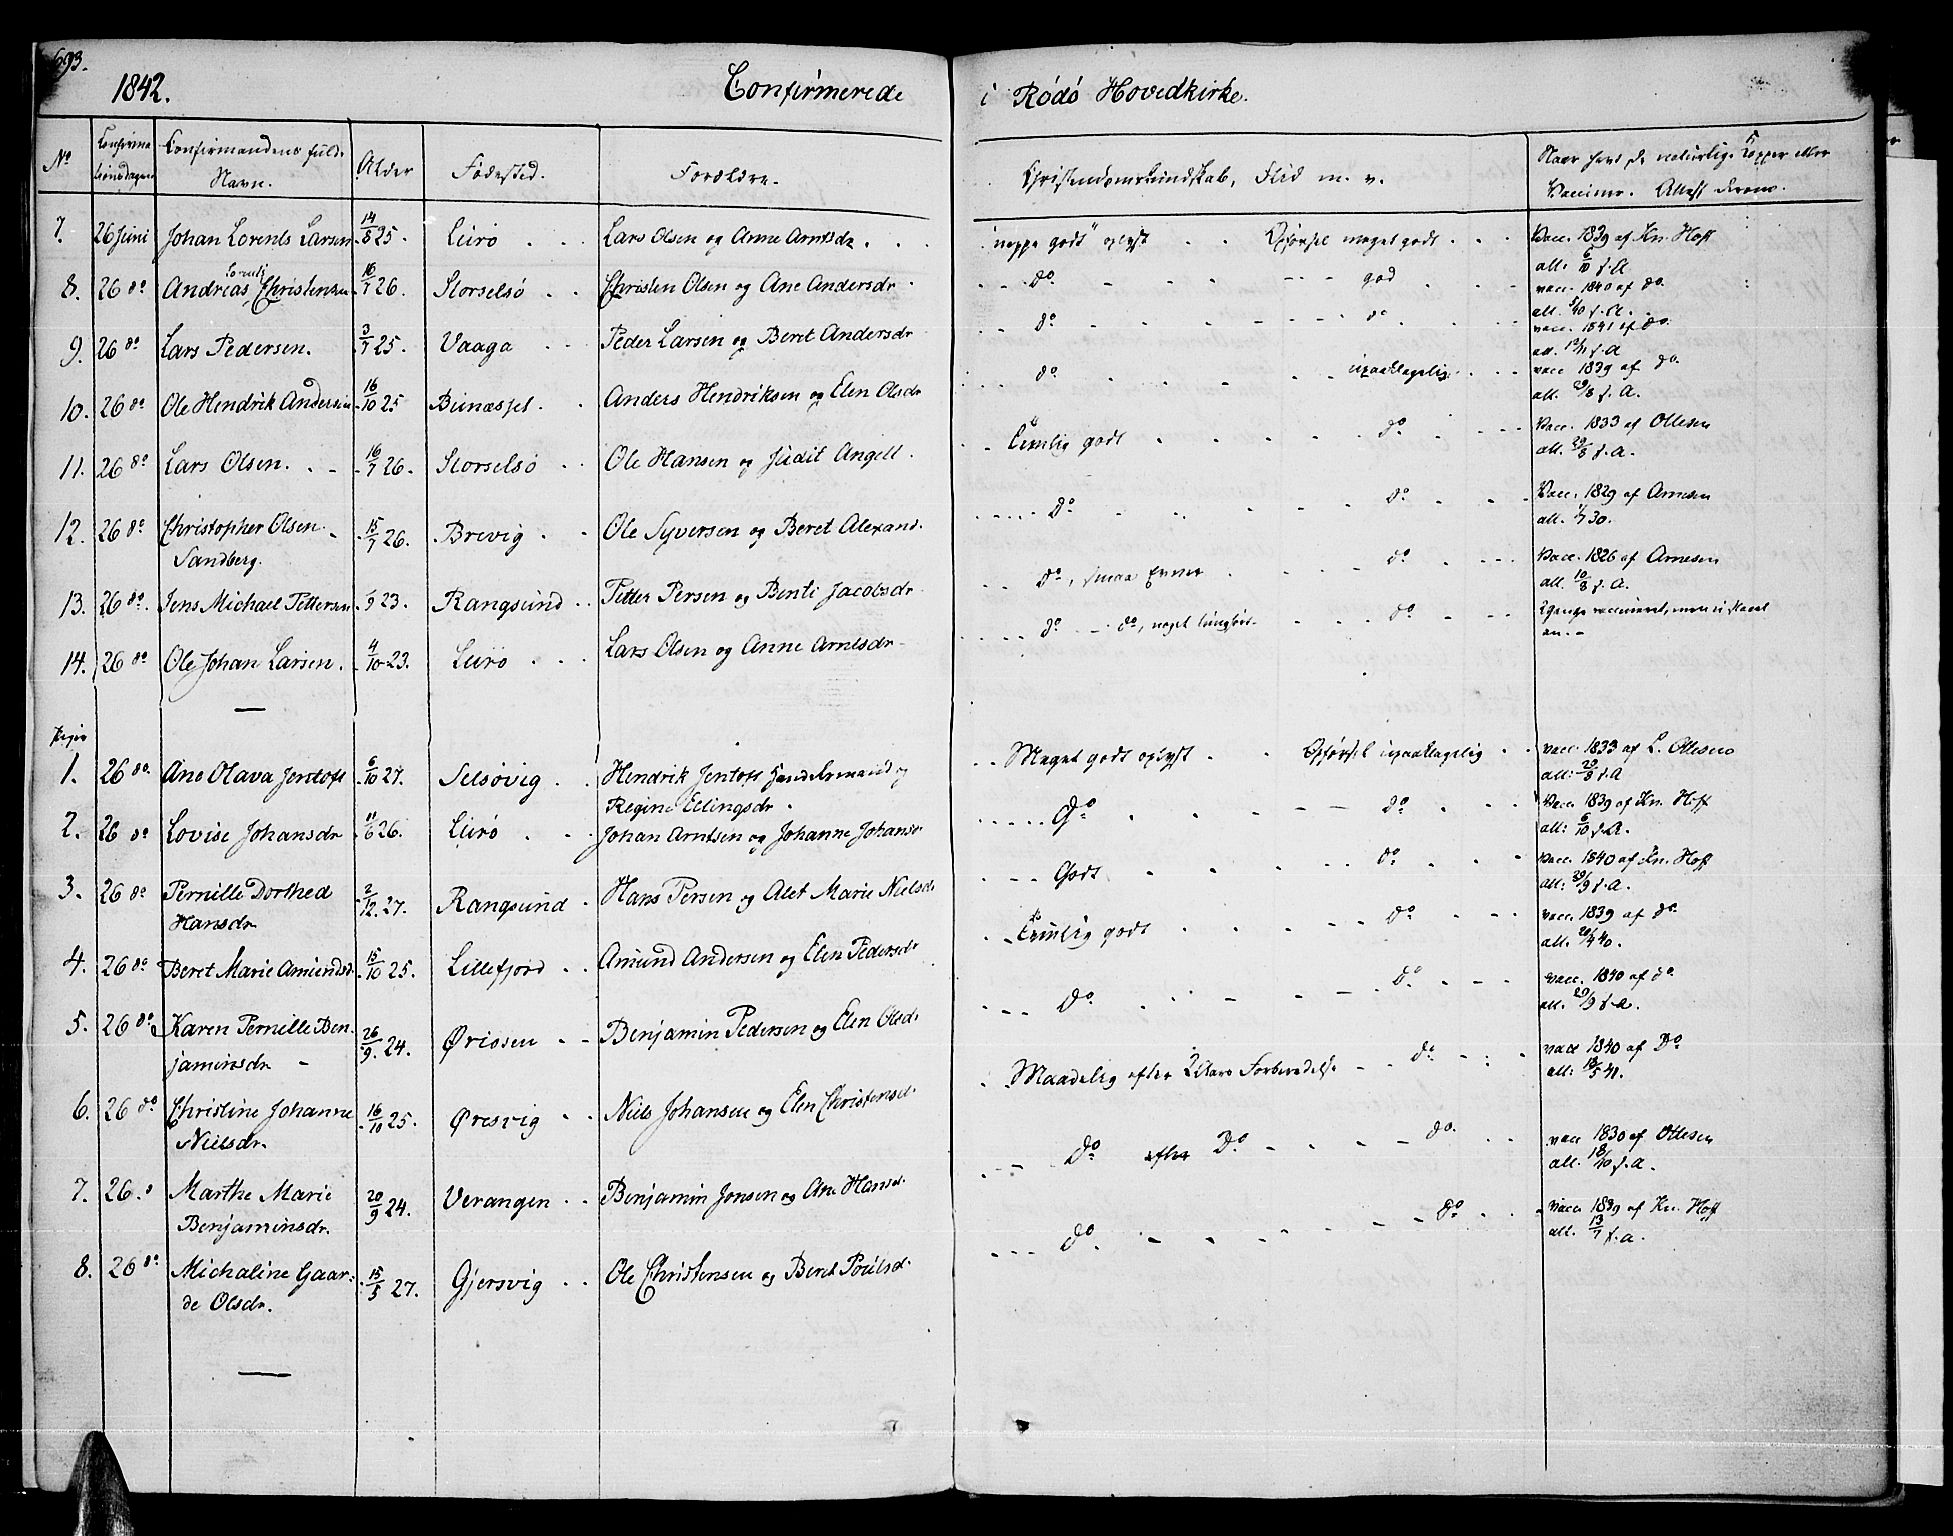 693.
1842. Confirmerede i Rødø Hovedkirke.
No Confirmationsdagen Confirmandens fulde Navn. Alder Fødested. Forældre. Christendomskundskab, Flid m. v. Naar havt de naturlige Kopper eller Vaccinen. Attest derom.
7. 26 Juni Johan Lorents Larsen 14/8 25. Leirø Lars Olsen og Anne Arntsdr. "noppe godt" oplyst Opførsel meget godt Vacc. 1839 af Kn. Hoff
att: 6/10 s. A.
8. 26 do Andreas Lorents Christensen 16/7 26. Storselsø Christen Olsen og Ane Andersdr. do god vacc. 1840 af do
att. 5/10 s. A.
9. 26 do Lars Pedersen. 3/7 25. Vaaga Peder Larsen og Beret Andersdr do do vacc. 1841 af do.
att. s. A
10. 26 do Ole Hendrik Andersen 16/10 25 Bimæssel Anders Hendriksen og Elen Olsdr do upaaklagelig vacc 1839 af do.
att. 29/8 s. A.
11. 26 do Lars Olsen. 16/7 26. Storselsø Ole Hansen og Judit Angell. Temlig godt do Vacc. 1833 af Ottesen
att. 20/8 s. a.
12. 26 do Christopher Olsen 15/7 26. Brevig Ole Syversen og Beret Alexand. do do Vacc. 1829 af Arnesen
Sandberg. att. 30.
13. 26 do. Jens Michael Pettersen 9 23. Rangsund Petter Persen og Benti Jacobsdr do, smaa Evner do Vacc. 1826 af Arnesen
att. 10/8 s. A.
14. 26 do Ole Johan Larsen. 4/10 23. Leirø Lars Olsen og Anne Arntsdr do do, noget tunghør do 2 gange vaccineret, men ei slaaet
an.
Piger
1. 26 do. Ane Olava Jentoft 6/10 27. Selsøvig Hendrik Jentoft Handelsmand og Meget godt oplyst Opførsel upaaklagelig vacc. 1833 af L. Ottesen
Regine Ellingsdr. att: 20/8 s. A
2. 26 do Lovise Johansdr 11/6 26. Leirø Johan Arntsen og Johanne Johansd do do Vacc. 1839 af Kn. Hoff
att: 6/10 s. A.
3. 26 do Pernille Dorthed 2/12. 27. Rangsund Hans Persen og Alet Marie Nielsd. Godt do Vacc. 1840 af Kn. Hoff
Hansdr att: 29/9 s. a.
4. 26 do Beret Marie Amundsd. 15/10 25. Lillefjord Amund Andersen og Elen Pedersdr Temlig godt do vacc. 1839 af do.
att. 20/4 40.
5. 26 do Karen Pernille Ben- 26/9. 24. Øriosen Benjamin Pedersen og Elen Olsd. do do. vacc. 1840 af do.
jaminsdr att. 29/9 s. a.
6. 26 do Christine Johanne 16/10 25. Øresvig Niels Johansen og Elen Christensd. Maadelig efter 2 Aars Forberedelse do vacc 1840 af Do
Nielsdr. att: 18/5 41.
7. 26. Marthe Marie 20/9 24. Verangen Benjamin Jonsen og Ane Hansd. do efter Do do. vacc 1830 af Ottesen
Benjaminsdr. att. 18/10 s. a.
8. 26 do Michaline Gaar- 15/5 27. Gjersvig Ole Christensen og Beret Poulsd. do. do vacc. 1839 af Kn. Hoff
de Olsdr. att. 13/7 s. a.